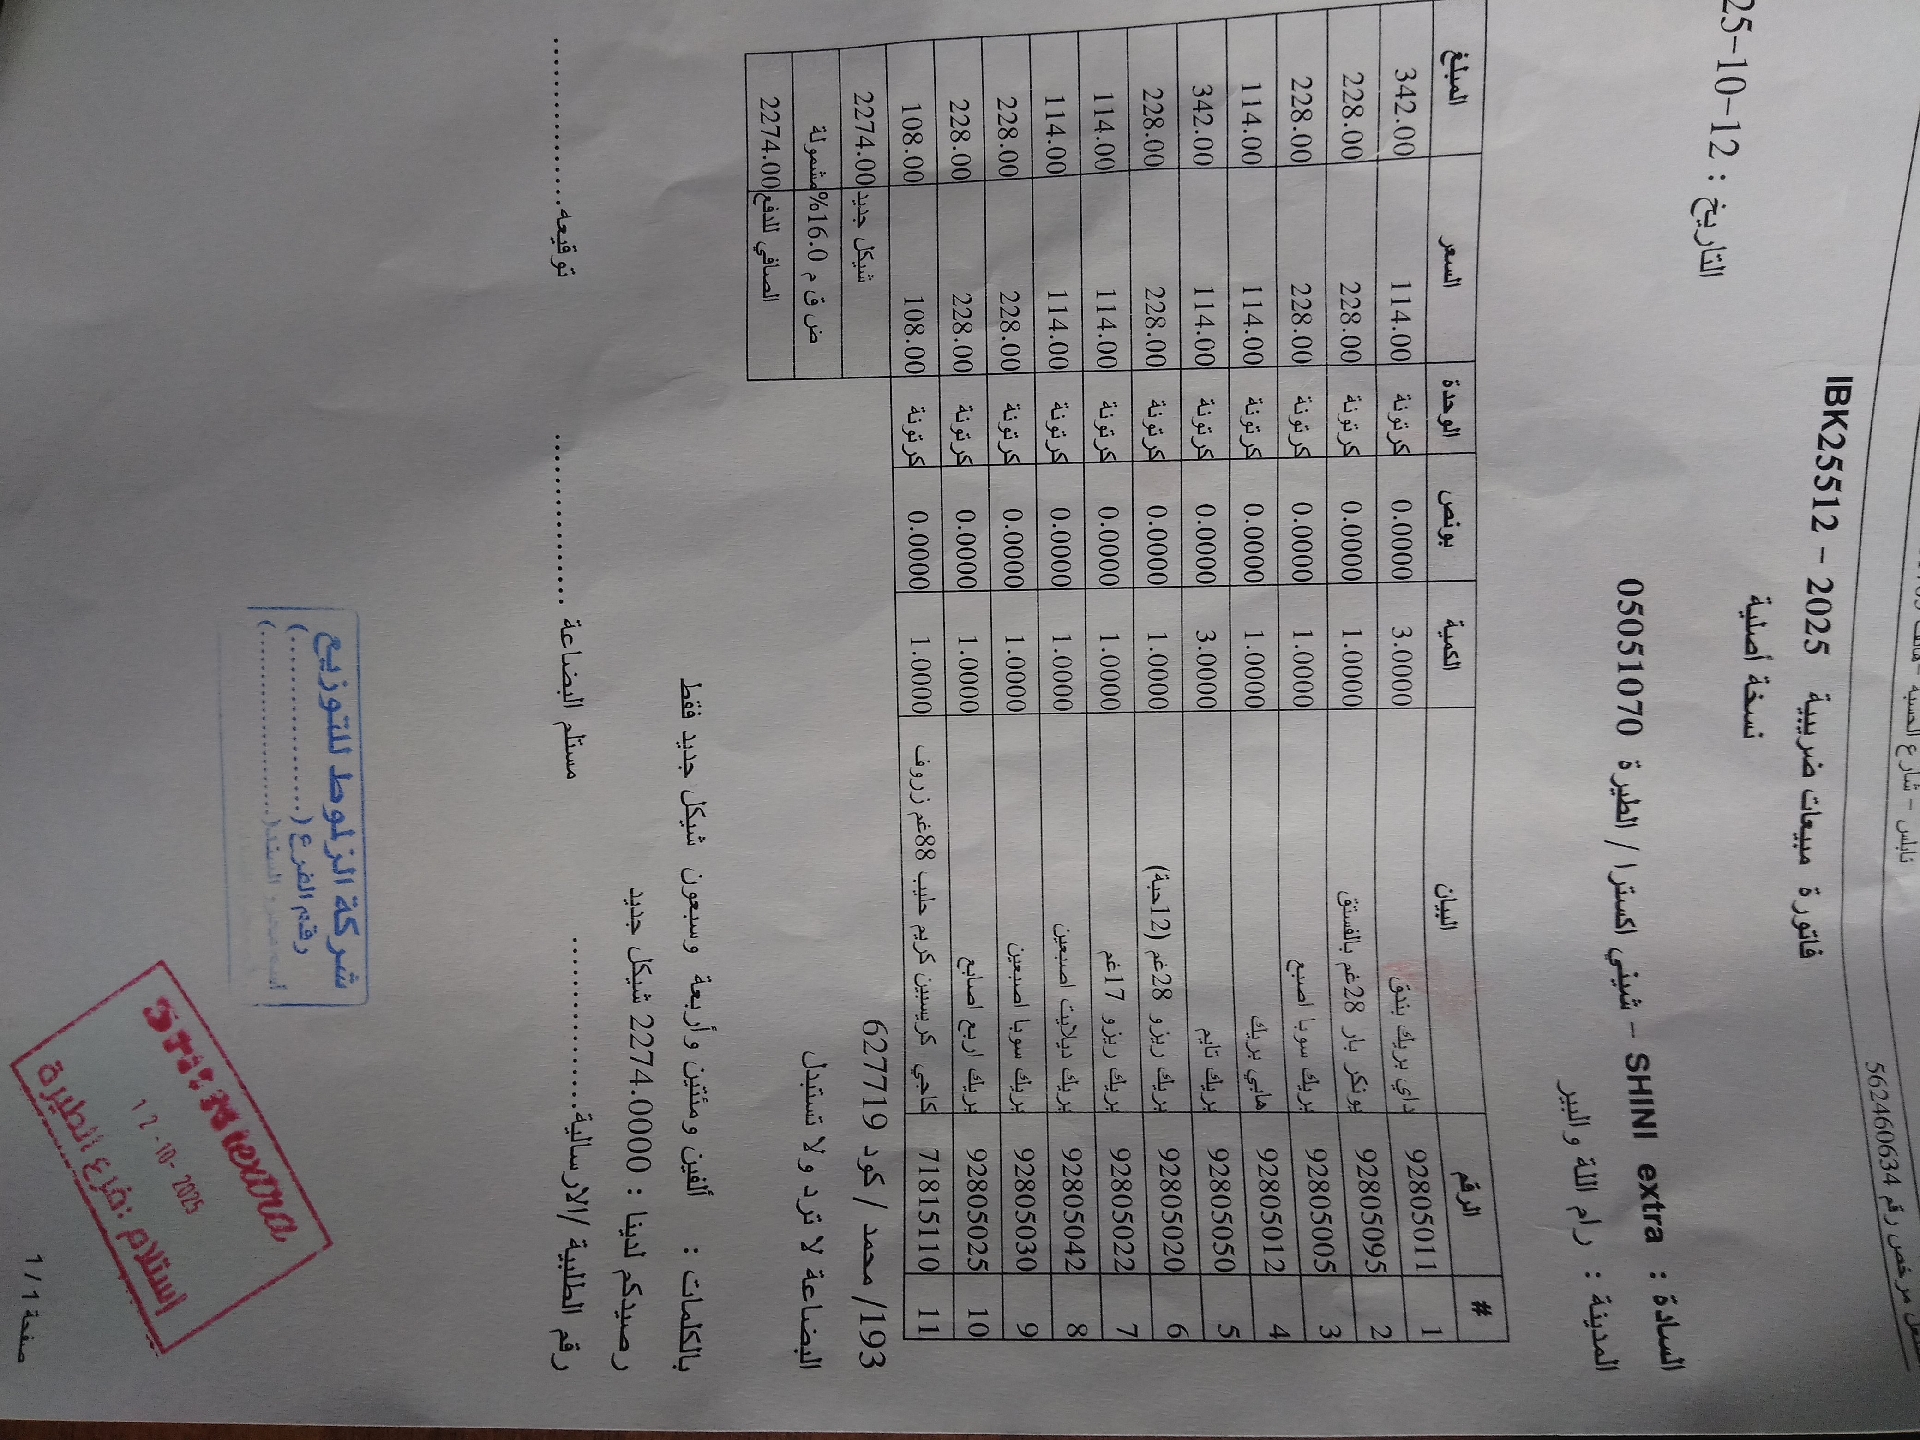 نابلس - شارع الحسبة
مشتغل مرخص رقم 562460634
فاتورة مبيعات ضريبية 2025 - IBK25512
نسخة أصلية
التاريخ : 12-10-25
السادة : SHINI extra - شيني اكسترا / الطيرة 05051070
المدينة : رام الله والبير
# الرقم البيان الكمية بونص الوحدة السعر المبلغ
1 92805011 داي بريك بندق 3.0000 0.0000 كرتونة 114.00 342.00
2 92805095 يونكر بار 28غم بالفستق 1.0000 0.0000 كرتونة 228.00 228.00
3 92805005 بريك سوبا اصبع 1.0000 0.0000 كرتونة 228.00 228.00
4 92805012 هابي بريك 1.0000 0.0000 كرتونة 114.00 114.00
5 92805050 بريك تايم 3.0000 0.0000 كرتونة 114.00 342.00
6 92805020 بريك ريزو 28غم (12حبة) 1.0000 0.0000 كرتونة 228.00 228.00
7 92805022 بريك ريزو 17غم 1.0000 0.0000 كرتونة 114.00 114.00
8 92805042 بريك ديلايت اصبعين 1.0000 0.0000 كرتونة 114.00 114.00
9 92805030 بريك سوبا اصبعين 1.0000 0.0000 كرتونة 228.00 228.00
10 92805025 بريك اربع اصابع 1.0000 0.0000 كرتونة 228.00 228.00
11 71815110 كاجي كريسبين كريم حليب 88غم زروف 1.0000 0.0000 كرتونة 108.00 108.00
شيكل جديد 2274.00
ض ق م 16.0% مشمولة
الصافي للدفع 2274.00
193/ محمد / كود 627719
البضاعة لا ترد ولا تستبدل
بالكلمات : ألفين ومئتين وأربعة وسبعون شيكل جديد فقط
رصيدكم لدينا : 2274.0000 شيكل جديد
رقم الطلبية /الارسالية.................. مستلم البضاعة .................. توقيعه..................
شركة الزلوط للتوزيع
رقم الفرع (..................)
extra
12-10-2025
استلام :فرع الطيرة
صفحة 1 / 1